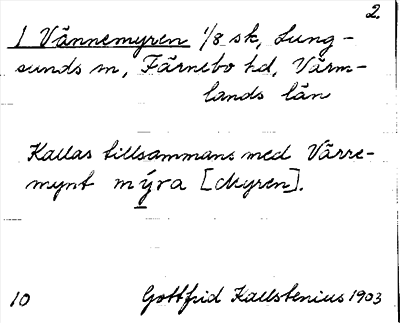 2.
1 Vännemyren 1/8 sk, Lung-
sunds sn, Färnebo hd, Värm-
lands län
Kallas tillsammans med Värre-
mynt mýra [Myren].
10 Gottfrid Kallstenius 1903